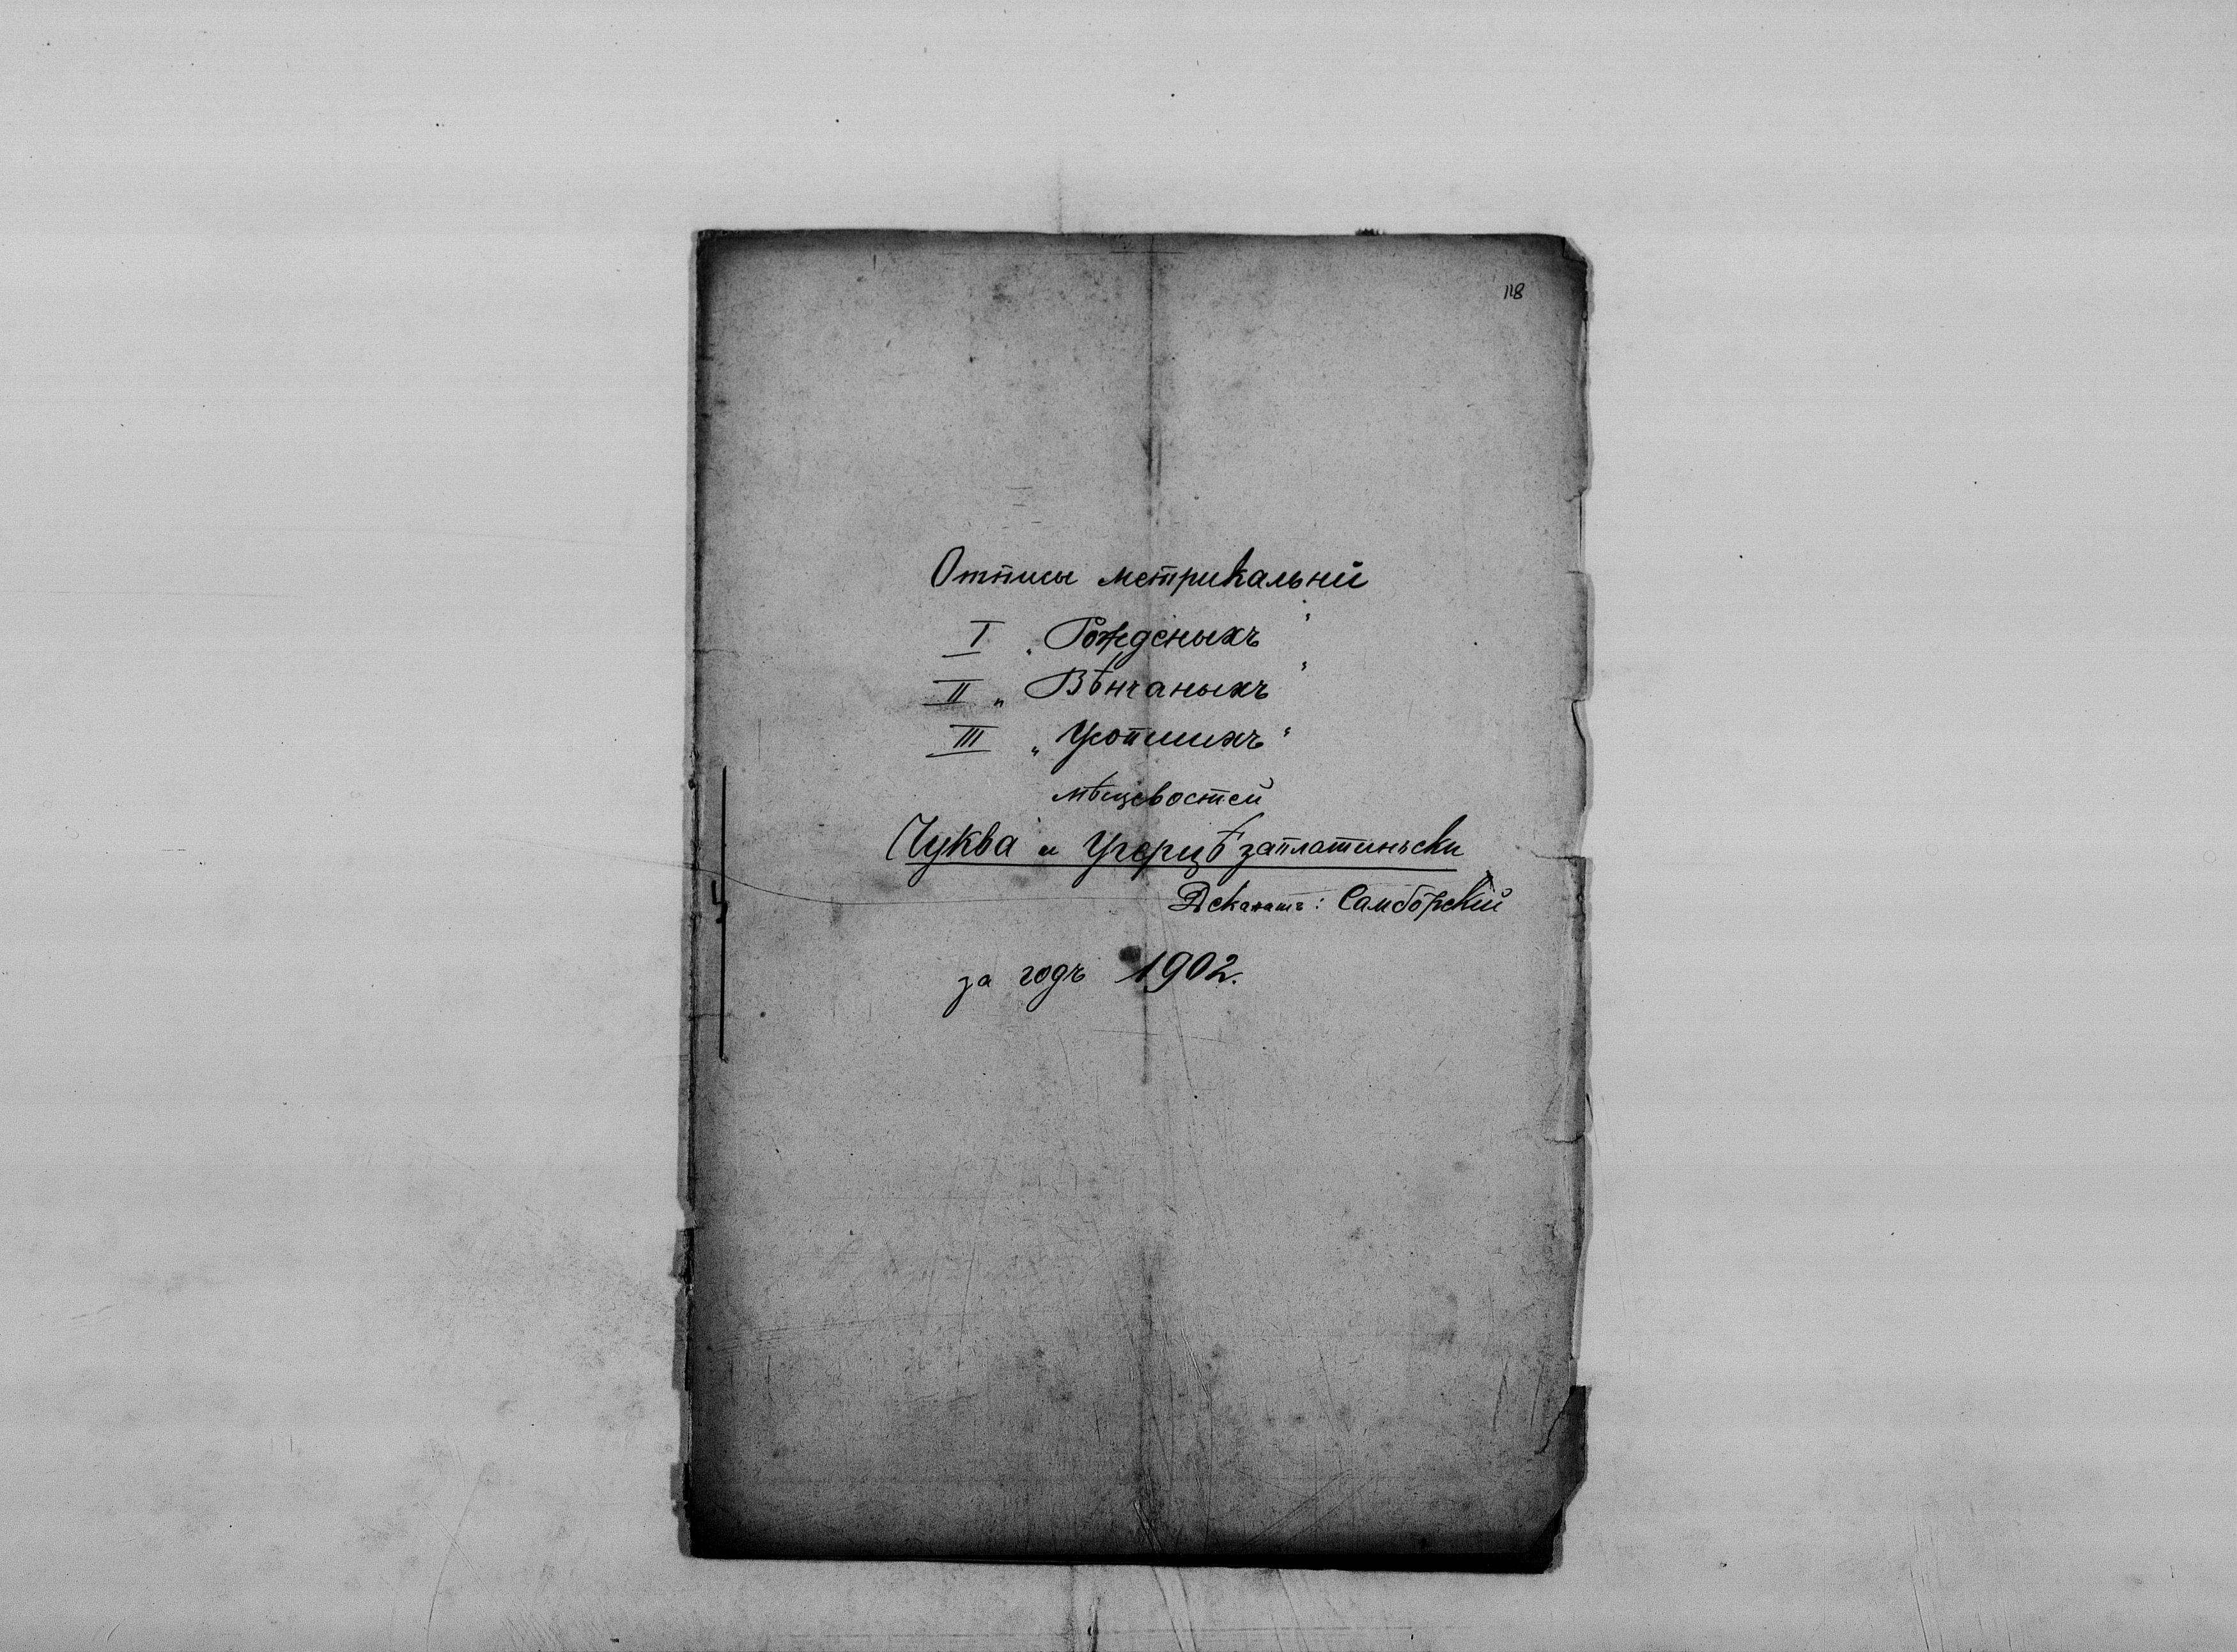 118
Отписы метрикальнй
I „Рожденыхъ“
II „Вѣнчаныхъ“
III „Усопшихъ“
мѣцевостей
Чуква и Угерцѣ заплатинъски
Деканатъ: Самбôрскій
за годъ 1902.